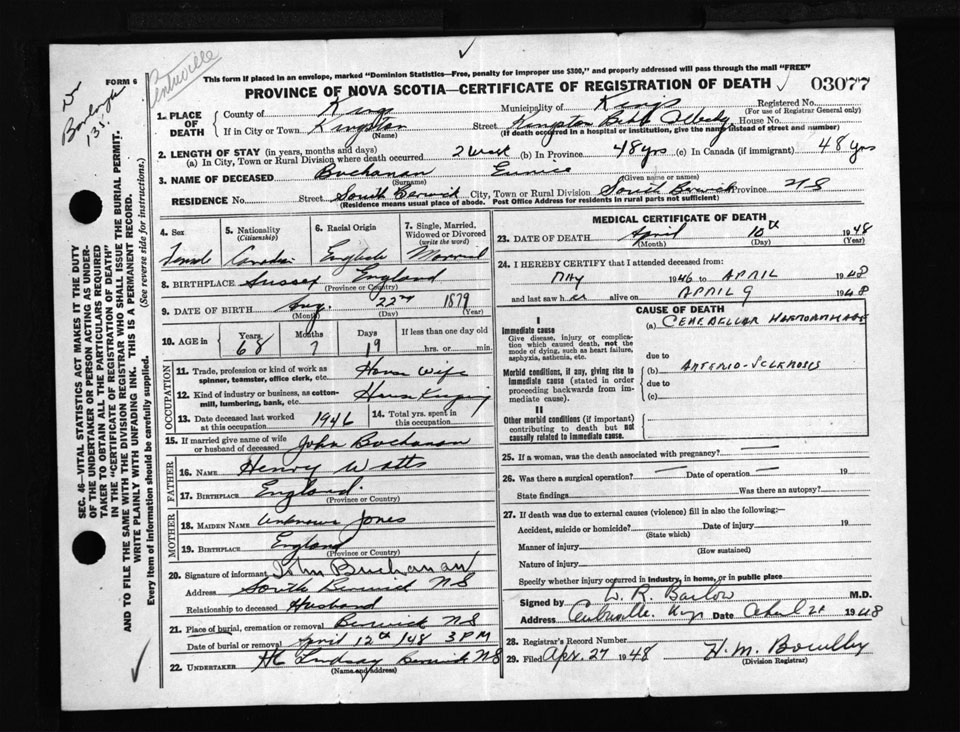 Centreville
Dr
Barlough
131.
FORM 6
This form if placed in an envelope, marked "Dominion Statistics—Free, penalty for improper use $300," and properly addressed will pass through the mail "FREE"
PROVINCE OF NOVA SCOTIA—CERTIFICATE OF REGISTRATION OF DEATH
03077
SEC. 46—VITAL STATISTICS ACT MAKES IT THE DUTY
OF THE UNDERTAKER OR PERSON ACTING AS UNDER-
TAKER TO OBTAIN ALL THE PARTICULARS REQUIRED
IN THE "CERTIFICATE OF REGISTRATION OF DEATH"
AND TO FILE THE SAME WITH THE DIVISION REGISTRAR WHO SHALL ISSUE THE BURIAL PERMIT.
WRITE PLAINLY WITH UNFADING INK. THIS IS A PERMANENT RECORD.
Every item of Information should be carefully supplied. (See reverse side for instructions.)
1. PLACE OF DEATH County of Kings Municipality of Kings Registered No.
(For use of Registrar General only)
If in City or Town Kingston Street Kingston House No.
(Name) (If death occurred in a hospital or institution, give the name instead of street and number)
2. LENGTH OF STAY (in years, months and days)
(a) In City, Town or Rural Division where death occurred 2 week (b) In Province 48 yrs (c) In Canada (if immigrant) 48 yrs
3. NAME OF DECEASED Buchanan Eunice
(Surname) (Given name or names)
RESIDENCE No. Street South Berwick City, Town or Rural Division South Berwick Province NS
(Residence means usual place of abode. Post Office Address for residents in rural parts not sufficient)
4. Sex
Female
5. Nationality
(Citizenship)
Canadian
6. Racial Origin
English
7. Single, Married,
Widowed or Divorced
(write the word)
Married
8. BIRTHPLACE Sussex England
(Province or Country)
9. DATE OF BIRTH Aug. 22nd 1879
(Month) (Day) (Year)
10. AGE in Years Months Days If less than one day old
68 7 19 hrs. or min.
OCCUPATION
11. Trade, profession or kind of work as
spinner, teamster, office clerk, etc. House Wife
12. Kind of industry or business, as cotton-
mill, lumbering, bank, etc. House Keeping
13. Date deceased last worked
at this occupation 1946
14. Total yrs. spent in
this occupation
15. If married give name of wife
or husband of deceased John Buchanan
FATHER
16. NAME Henry Watts
17. BIRTHPLACE England.
(Province or Country)
MOTHER
18. MAIDEN NAME unknown Jones
19. BIRTHPLACE England
(Province or Country)
20. Signature of informant John Buchanan
Address South Berwick NS
Relationship to deceased Husband
21. Place of burial, cremation or removal Berwick NS
Date of burial or removal April 12th 148 3 PM
22. UNDERTAKER Lindsay Berwick NS
(Name and address)
MEDICAL CERTIFICATE OF DEATH
23. DATE OF DEATH April 10th 1948
(Month) (Day) (Year)
24. I HEREBY CERTIFY that I attended deceased from:
MAY 1946 to APRIL 1948
and last saw her alive on APRIL 9 1948
CAUSE OF DEATH
I
Immediate cause
Give disease, injury or complica-
tion which caused death, not the
mode of dying, such as heart failure,
asphyxia, asthenia, etc.
(a) CEREBELLAR HAEMORRHAGE
Morbid conditions, if any, giving rise to
immediate cause (stated in order
proceeding backwards from im-
mediate cause).
due to
(b) ARTERIO-SCLEROSIS
due to
(c)
II
Other morbid conditions (if important)
contributing to death but not
causally related to immediate cause.
25. If a woman, was the death associated with pregnancy? —
26. Was there a surgical operation? — Date of operation — 19
State findings Was there an autopsy?
27. If death was due to external causes (violence) fill in also the following:—
Accident, suicide or homicide? Date of injury 19
(State which)
Manner of injury
(How sustained)
Nature of injury
Specify whether injury occurred in industry, in home, or in public place
Signed by R. Barlow M.D.
Address Centreville. Kings Date April 21 1948
28. Registrar's Record Number
29. Filed Apr. 27 1948 H. M.
(Division Registrar)